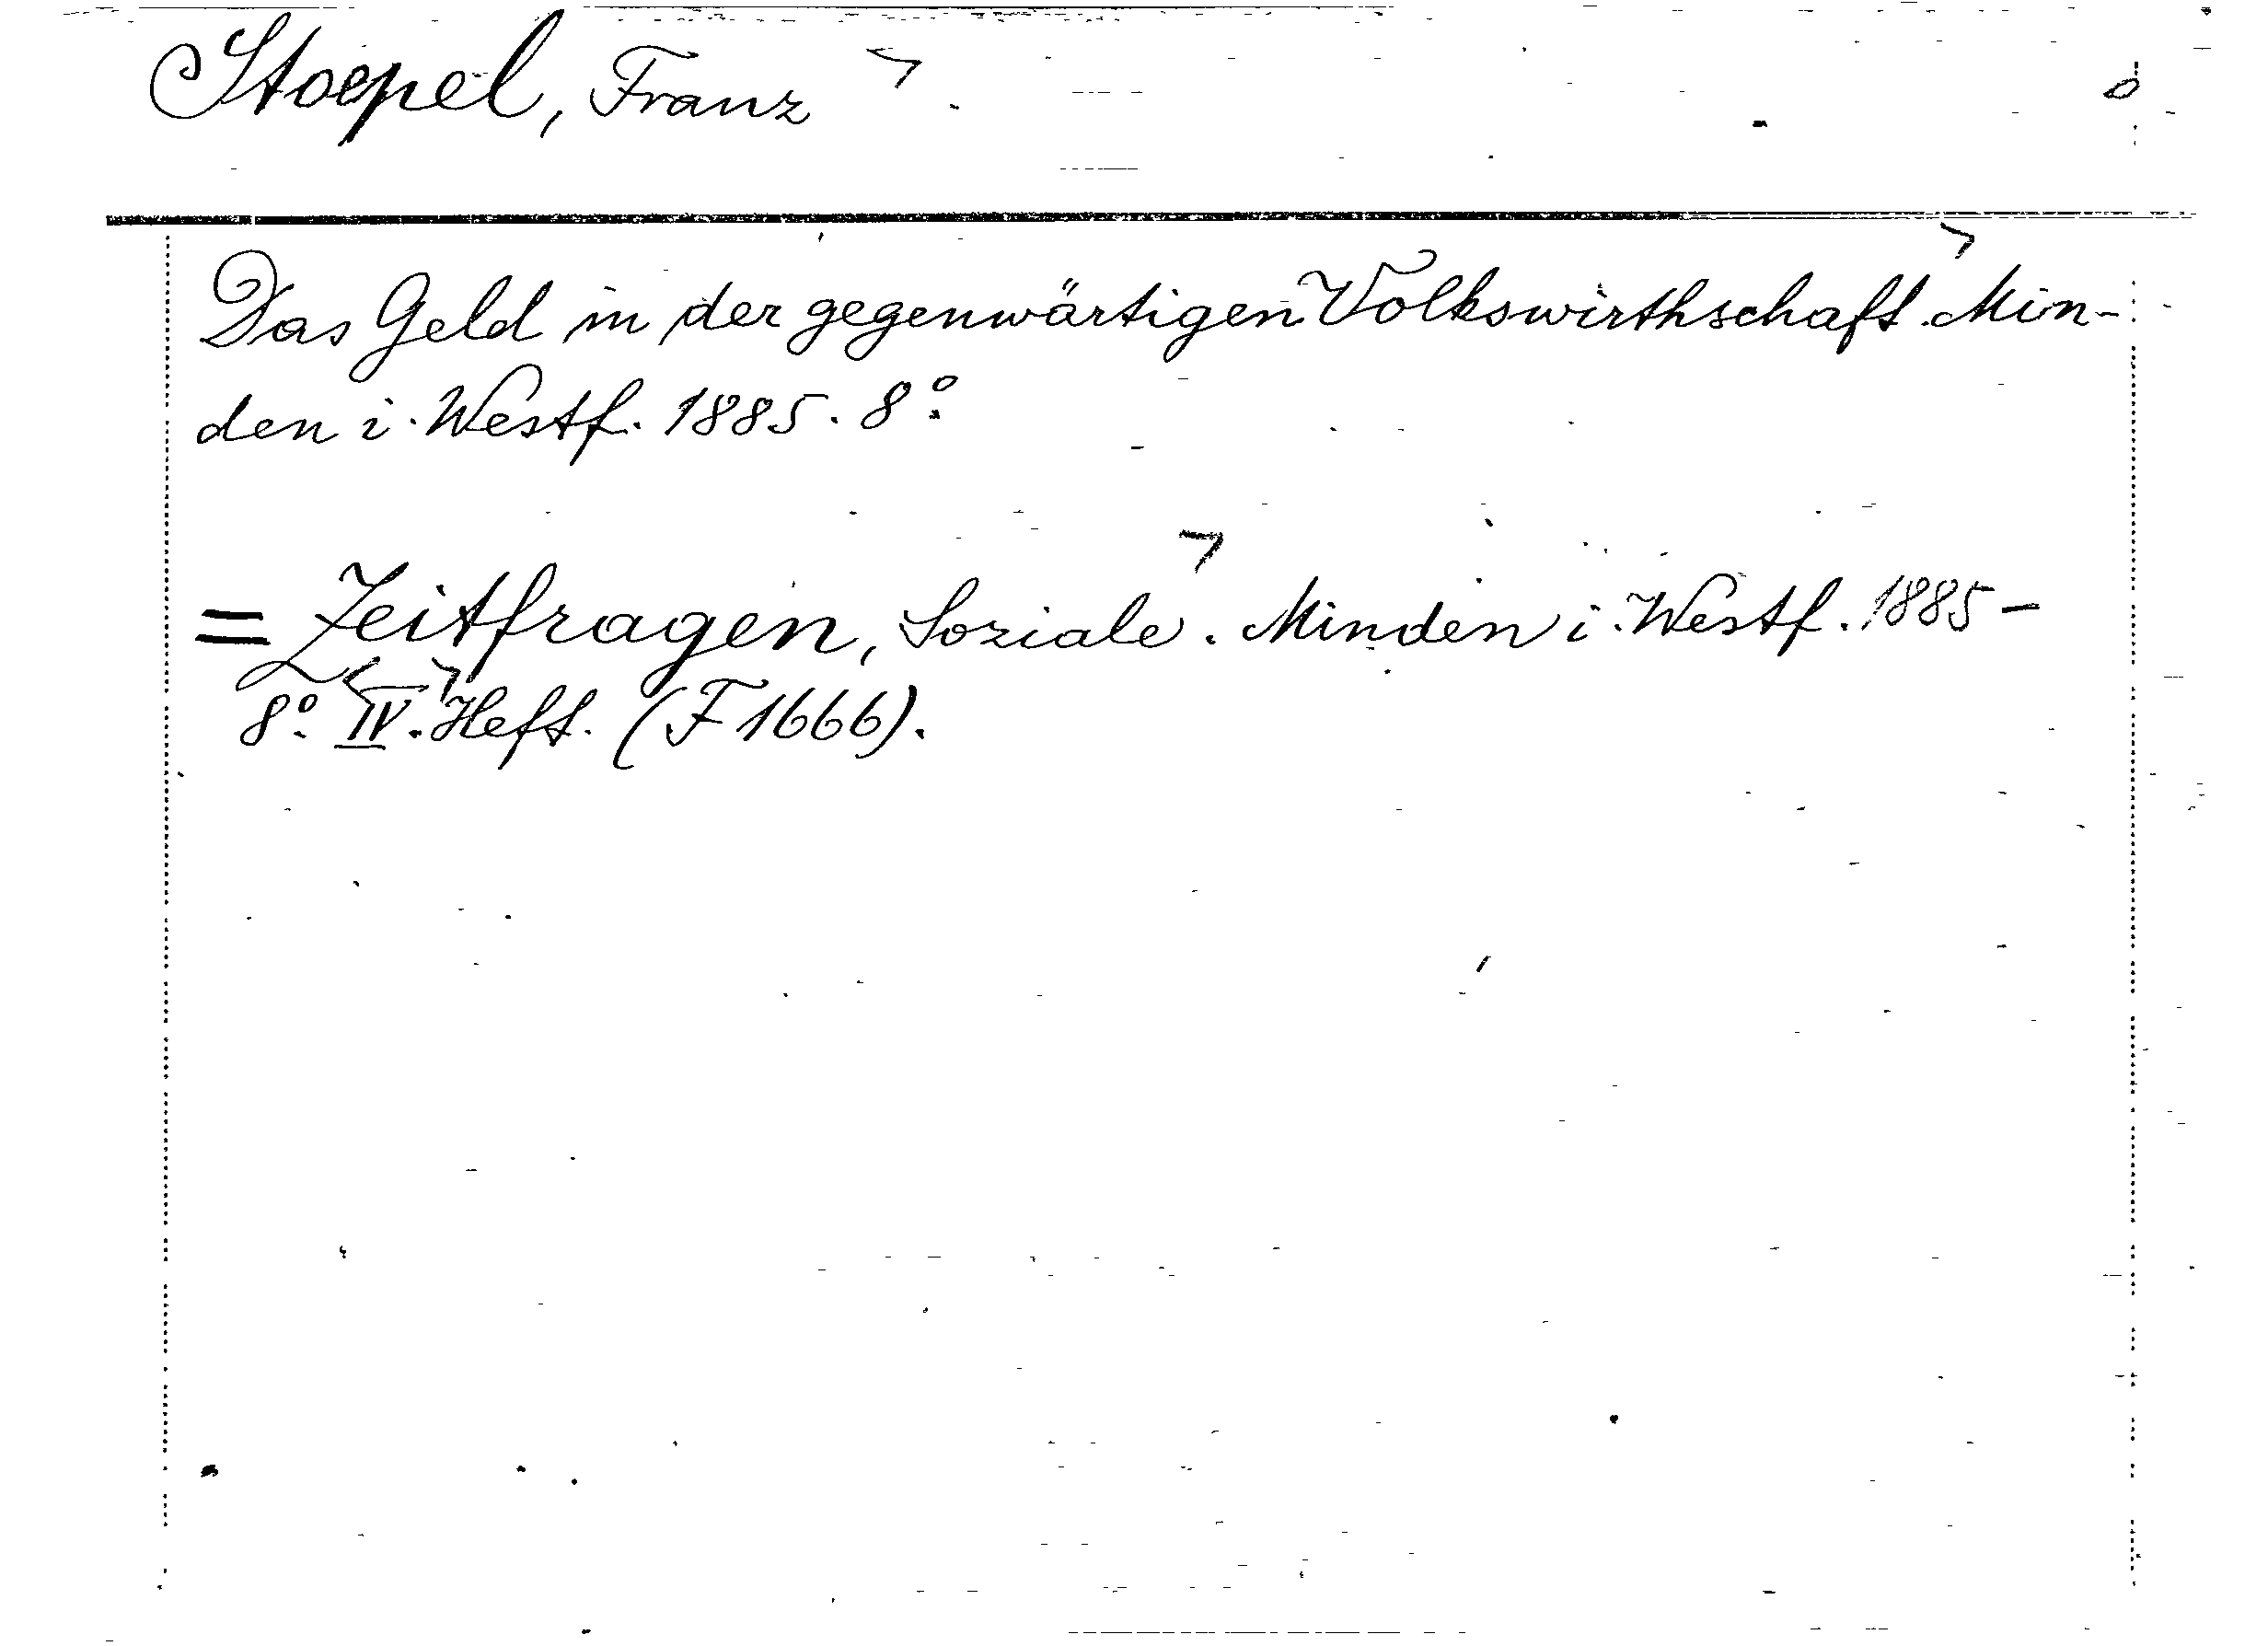 Stoepel, Franz
Das Geld in der gegenwärtigen Volkswirthschaft. Min-
den i. Westf. 1885. 8°.
= Zeitfragen, Soziale. Minden i. Westf. 1885 -
8°. IV. Heft. (F 1666).